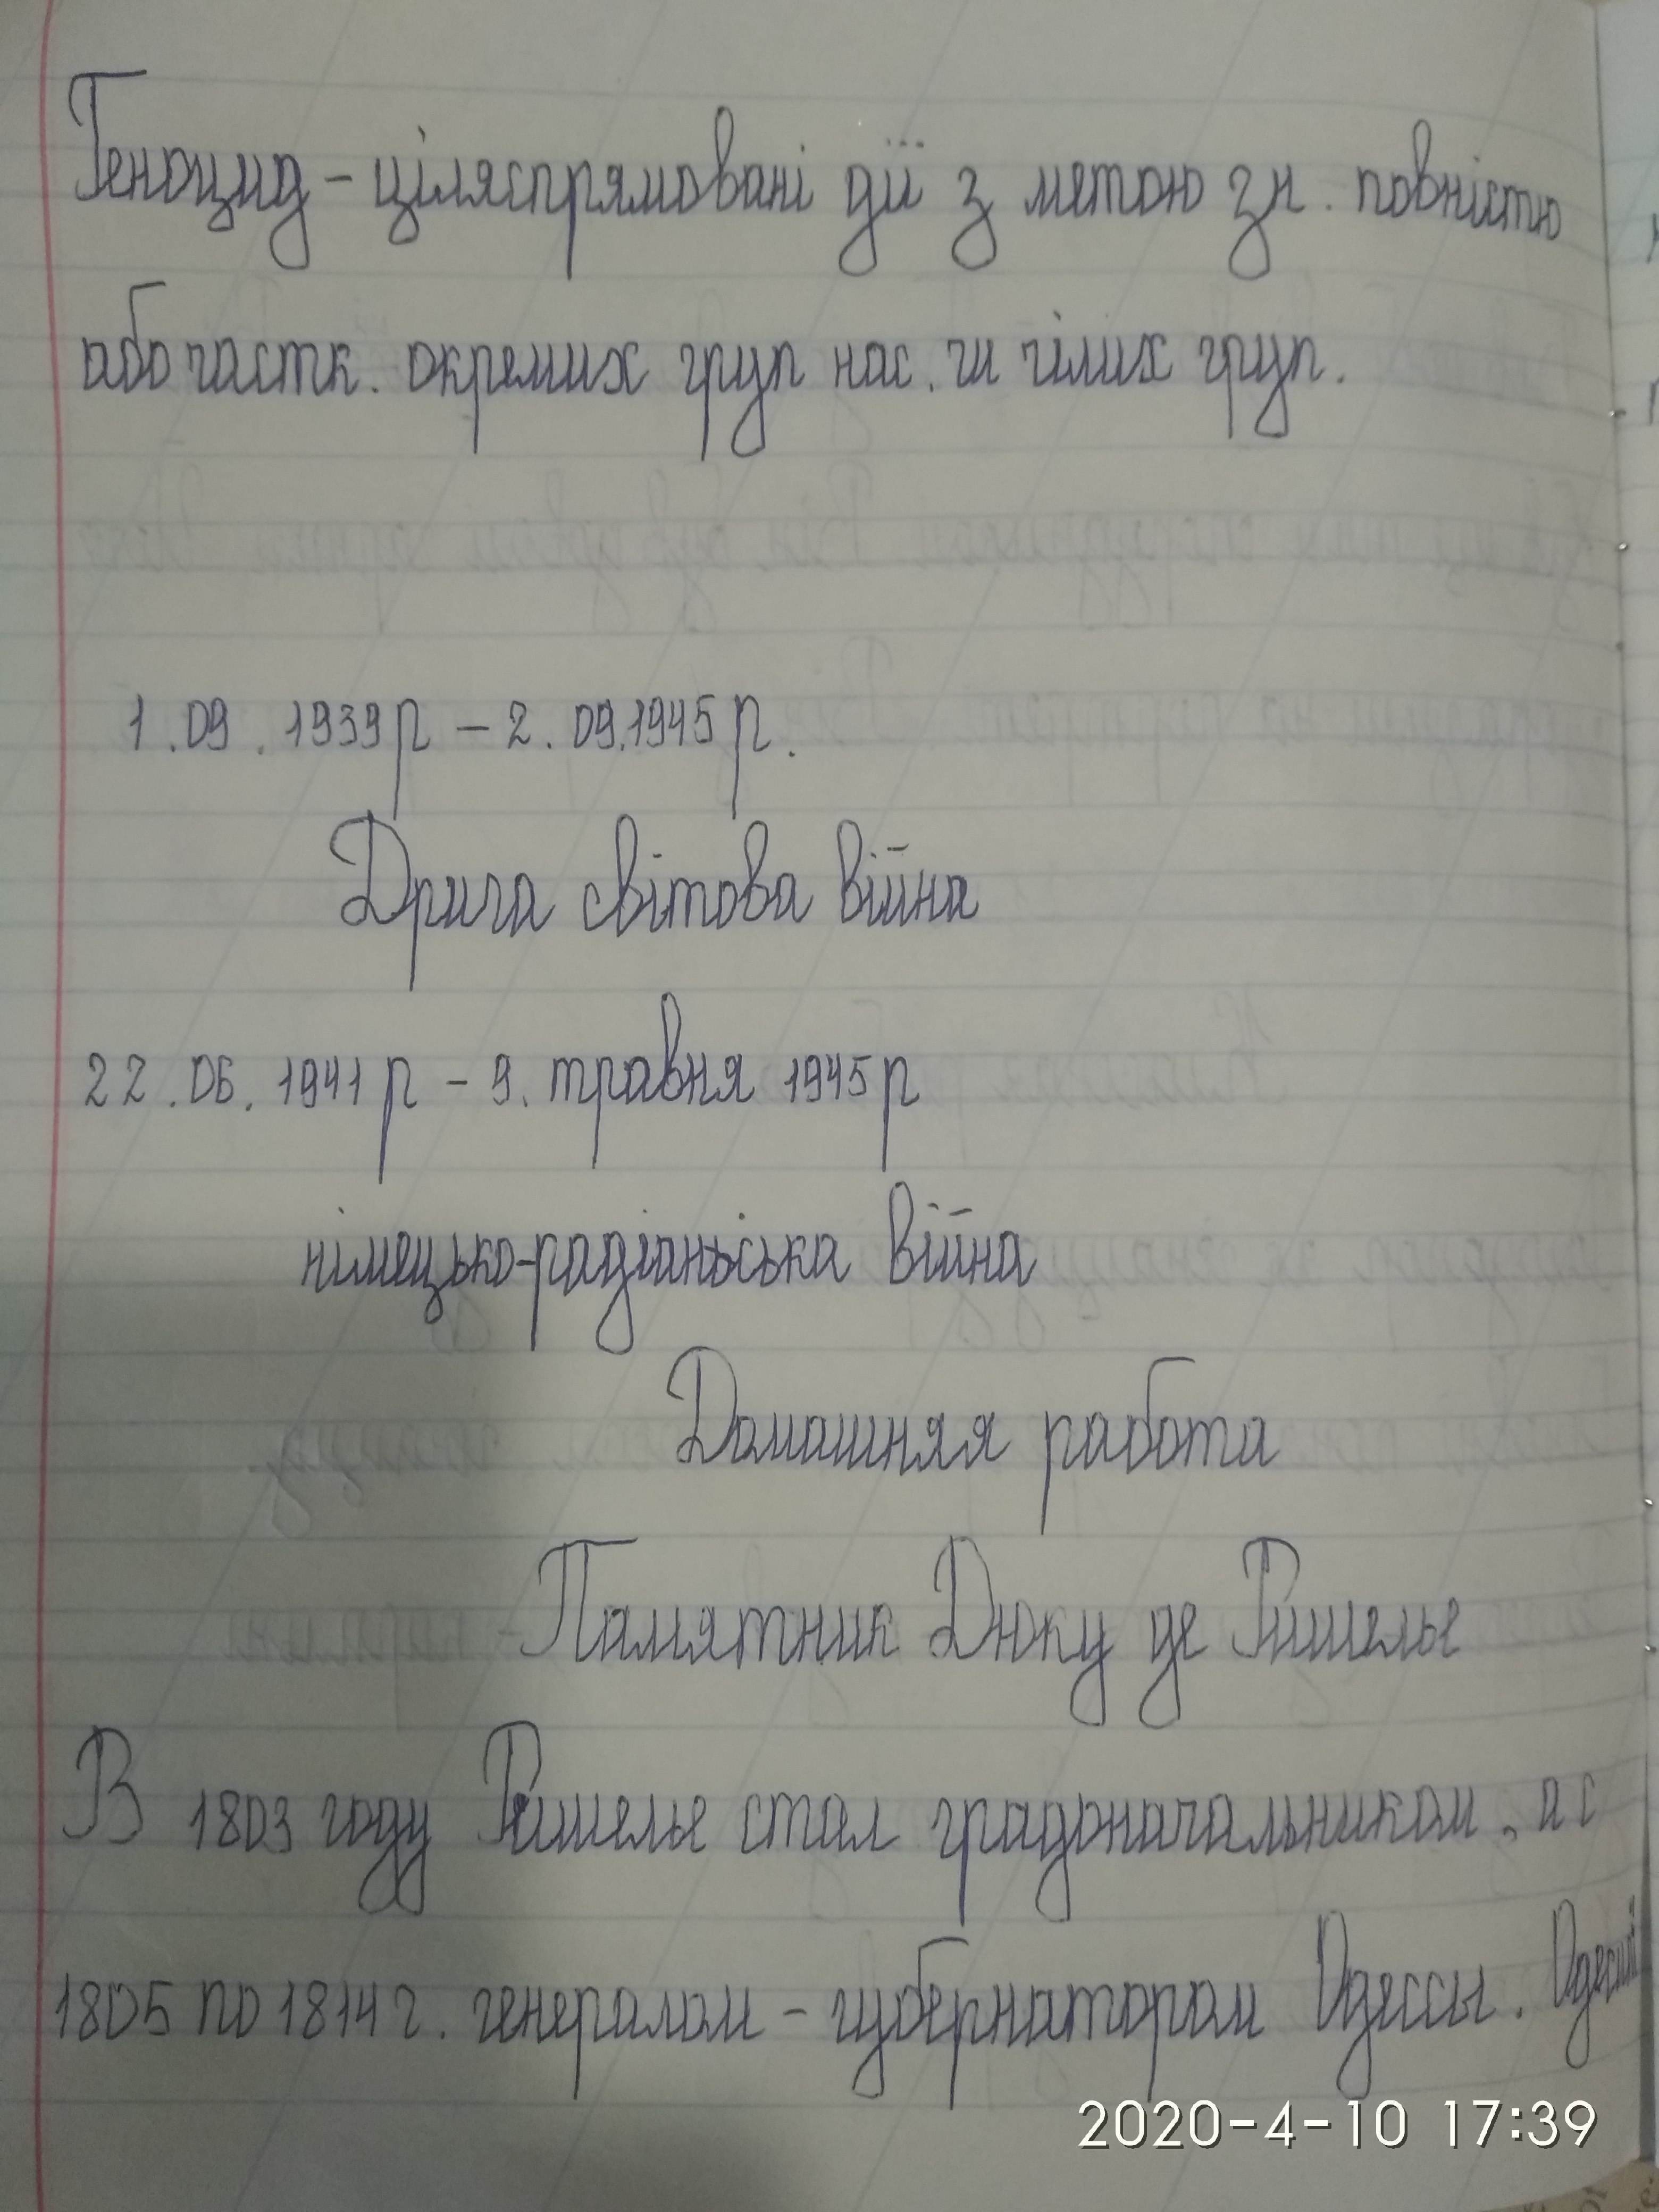 Геноцид - ціляспрямовані дії з метою зн. повністю
або частк. окремих груп нас. чи цілих груп.
1.09.1939р - 2.09.1945р.
Друга світова війна
22.06.1941р - 9. травня 1945р
німецько-радіанська війна
Домашняя работа
Памятник Дюку де Ришелье
В 1803 году Ришелье стал градоначальником, а с
1805 по 1814 г. генералом - губернатором Одессы.
2020-4-10 17:39